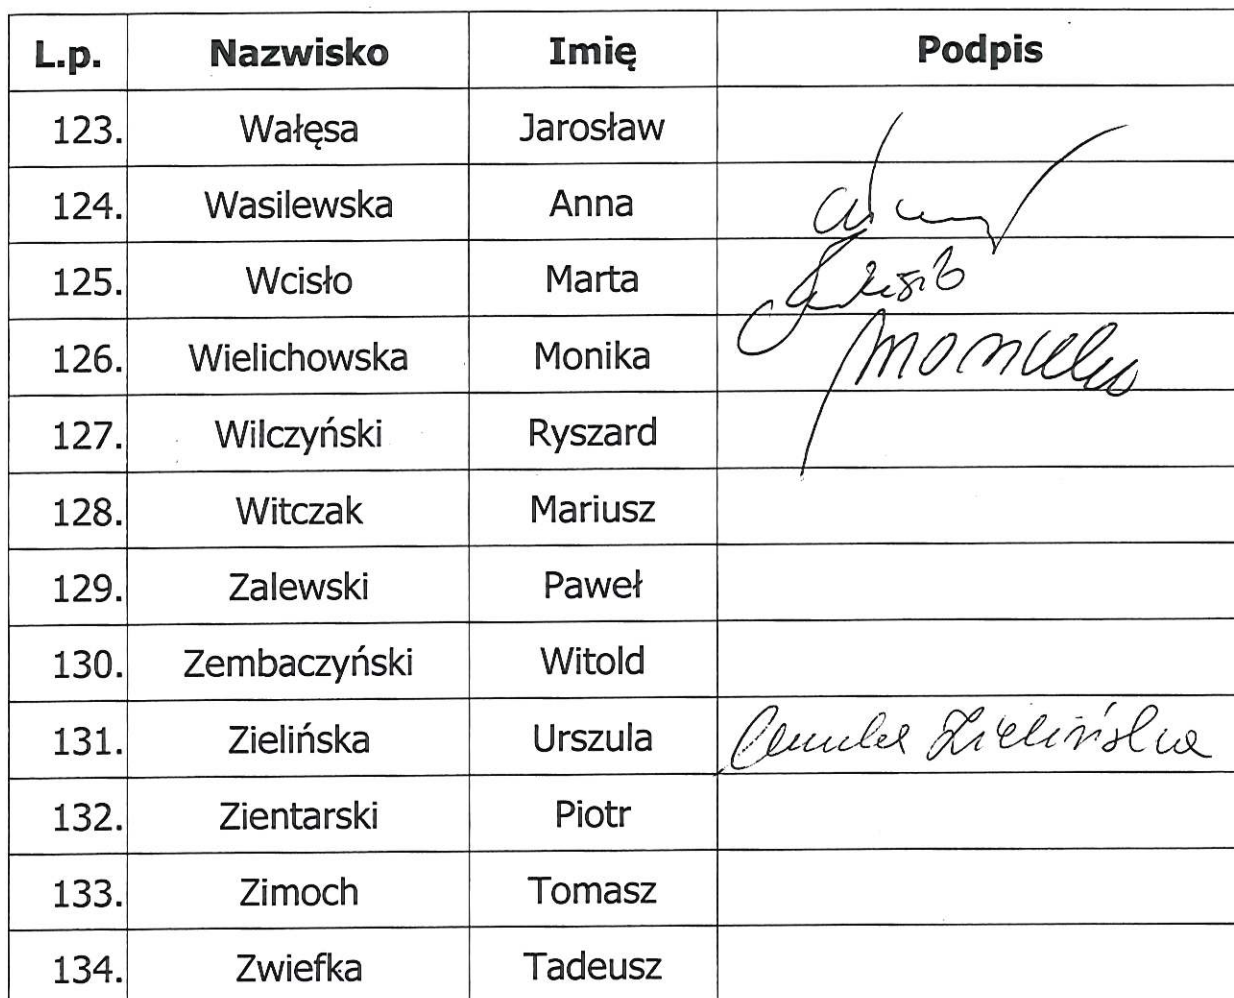 L.p. Nazwisko Imię Podpis
123. Wałęsa Jarosław
124. Wasilewska Anna
125. Wcisło Marta
126. Wielichowska Monika
127. Wilczyński Ryszard
128. Witczak Mariusz
129. Zalewski Paweł
130. Zembaczyński Witold
131. Zielińska Urszula Urszula Zielińska
132. Zientarski Piotr
133. Zimoch Tomasz
134. Zwiefka Tadeusz